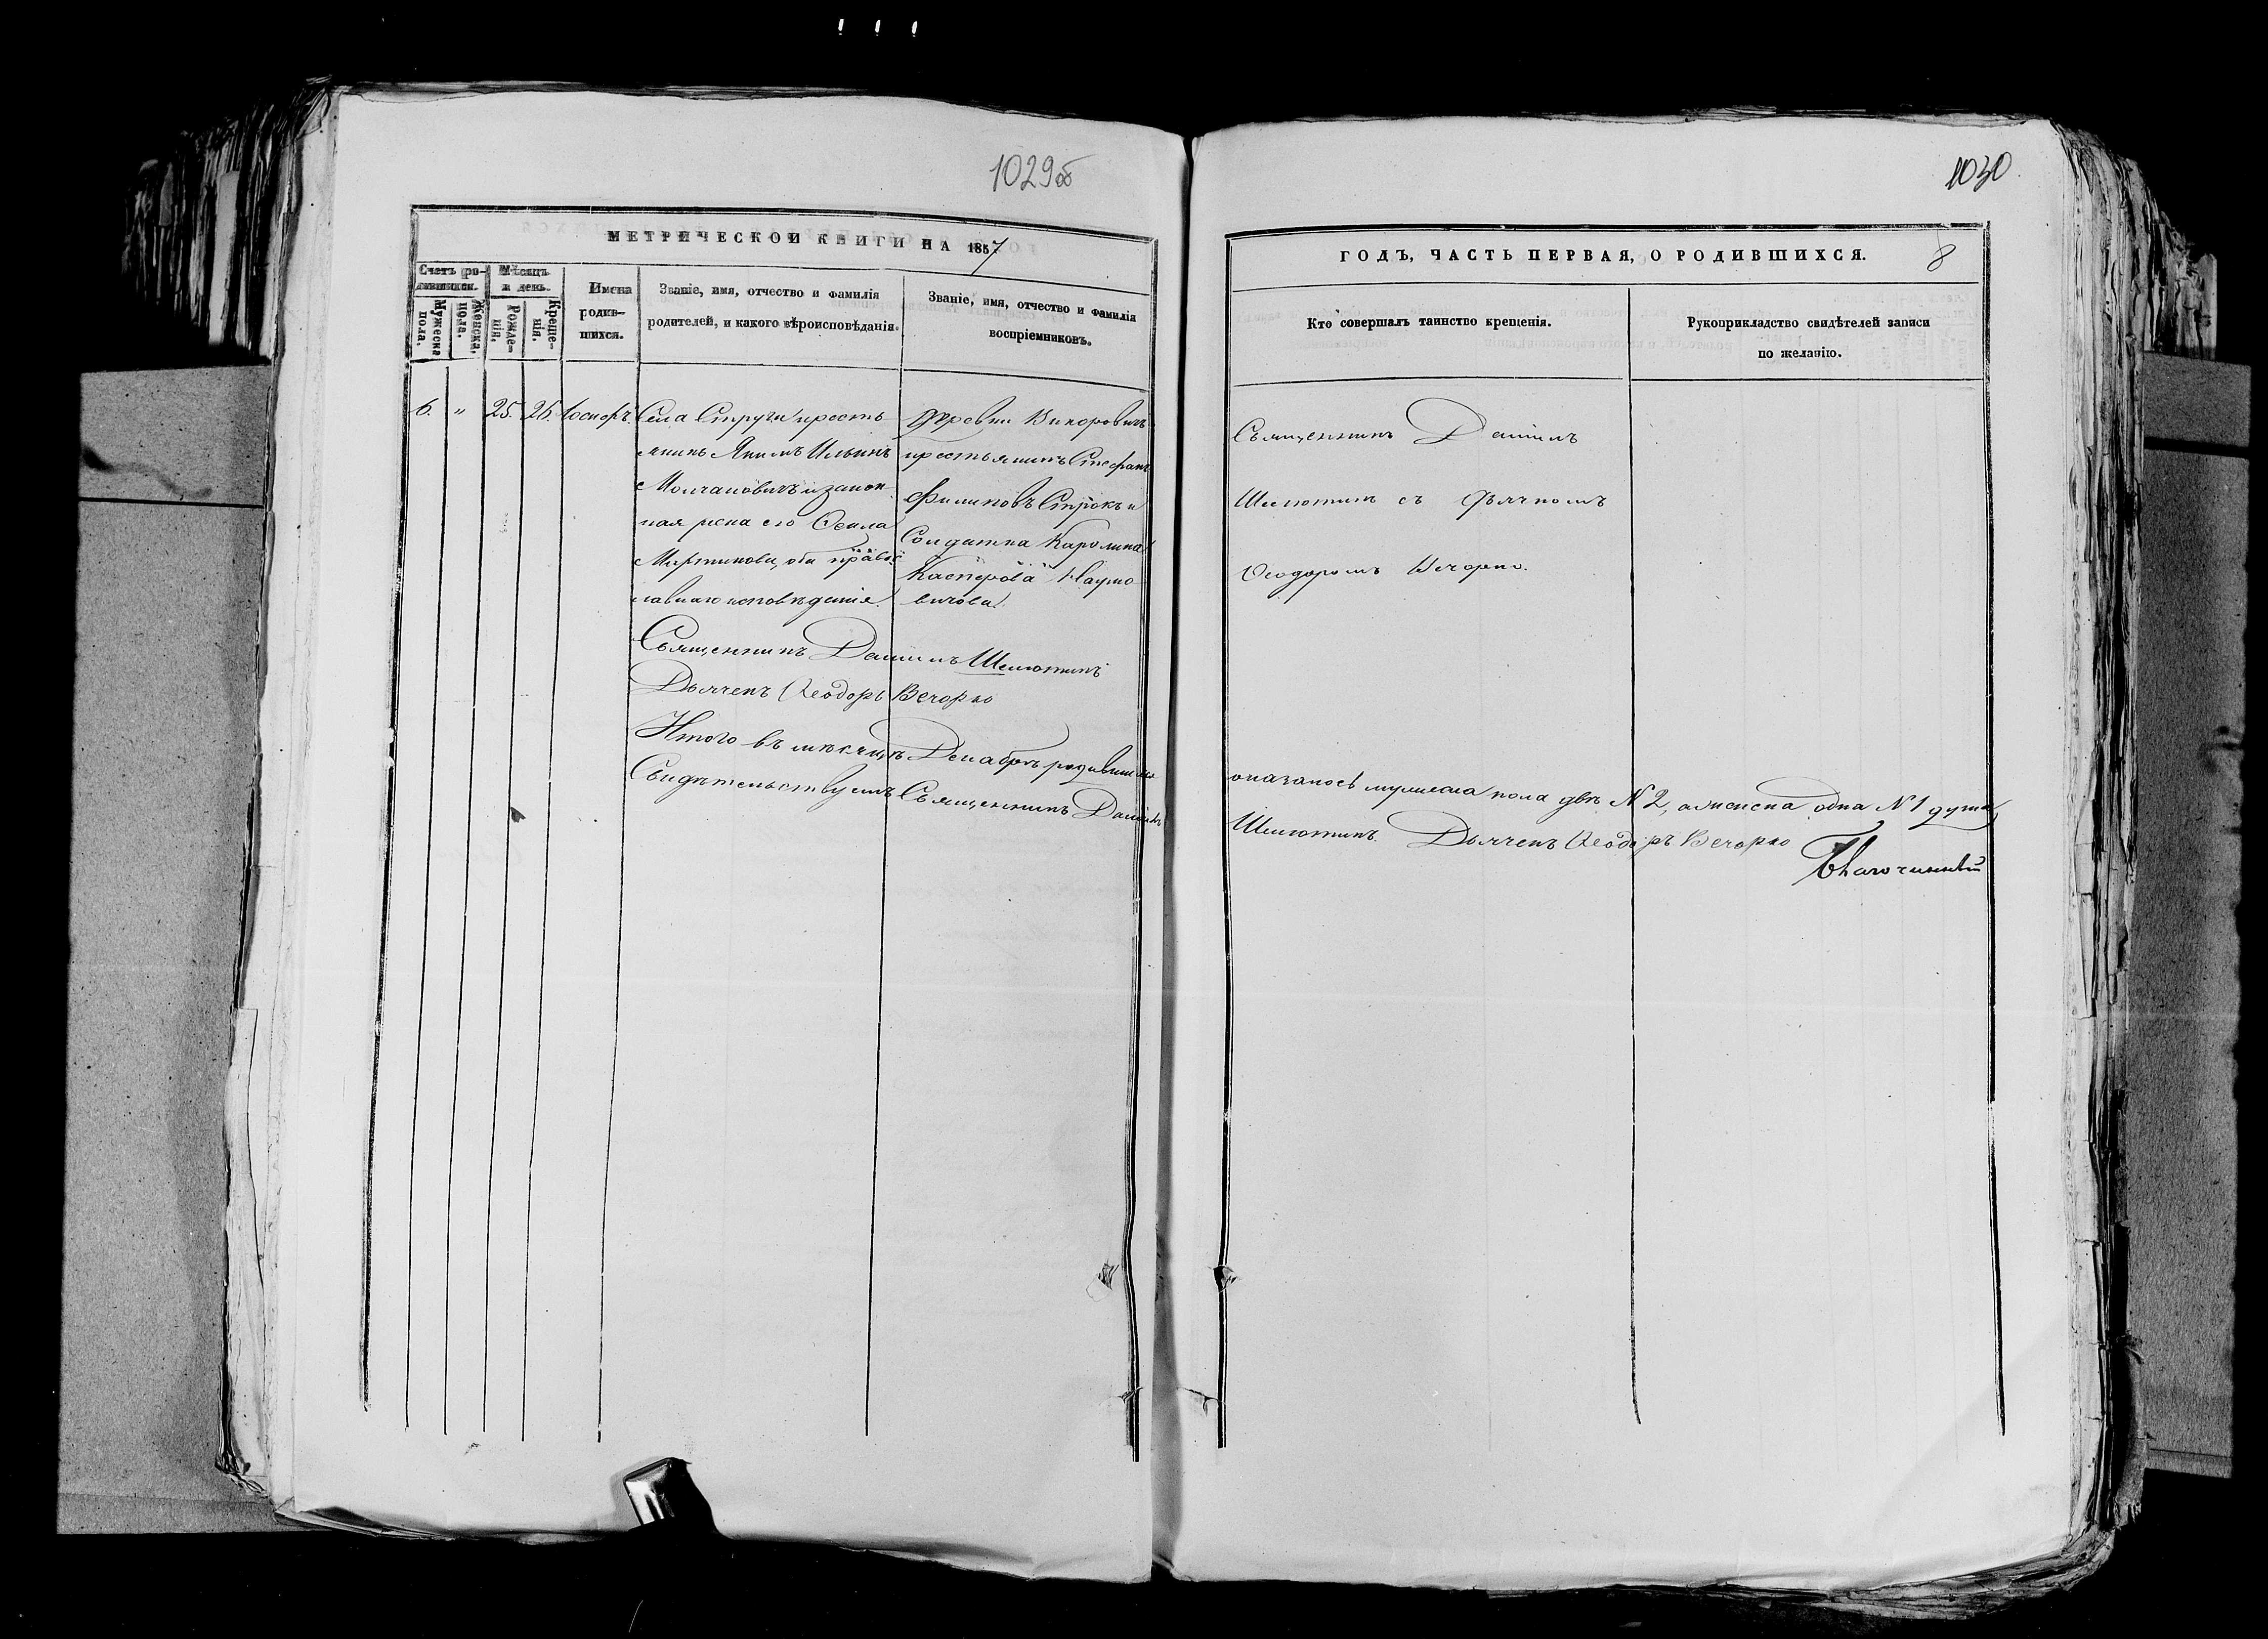 1029об
МЕТРИЧЕСКОЙ КНИГИ НА 1857
Счетъ ро-
дившихся.
Мѣсяцъ
и день.
Мужеска
пола.
Женска.
пола.
Рожде-
нія.
Креще-
нія.
Имена
родив-
шихся.
Званіе, имя, отчество и фамилія
родителей, и какого вѣроисповѣданія.
Званіе, имя, отчество и фамилія
воспріемниковъ.
6. „ 25. 26. Іосифъ.
Села Струги кресть-
янинъ Якимъ Ильинъ
Молчановичъ и закон-
ная жена его Фекла
Мартинова, оба правос-
лавнаго исповѣданія.
Деревни Викоровичъ
крестьянинъ Стефанъ
Филиповъ Строкъ и
Солдатка Каролина
Касперова Наумо-
вичова.
Священникъ Даніилъ Шелютинъ
Дьячекъ Ѳеодоръ Вечорко
Итого въ мѣсяцѣ Декабрѣ родившихся
Свидѣтельствуемъ Священникъ Даніилъ
1030
ГОДЪ, ЧАСТЬ ПЕРВАЯ, О РОДИВШИХСЯ. 8
Кто совершалъ таинство крещенія.
Рукоприкладство свидѣтелей записи
по желанію.
Священникъ Даніилъ
Шелютинъ съ дьячкомъ
Ѳеодоромъ Вечорко.
оказалось мужеска пола двѣ № 2, а женска одна № 1 душа
Шелютинъ. Дьячекъ Ѳеодоръ Вечорко
Благочинный